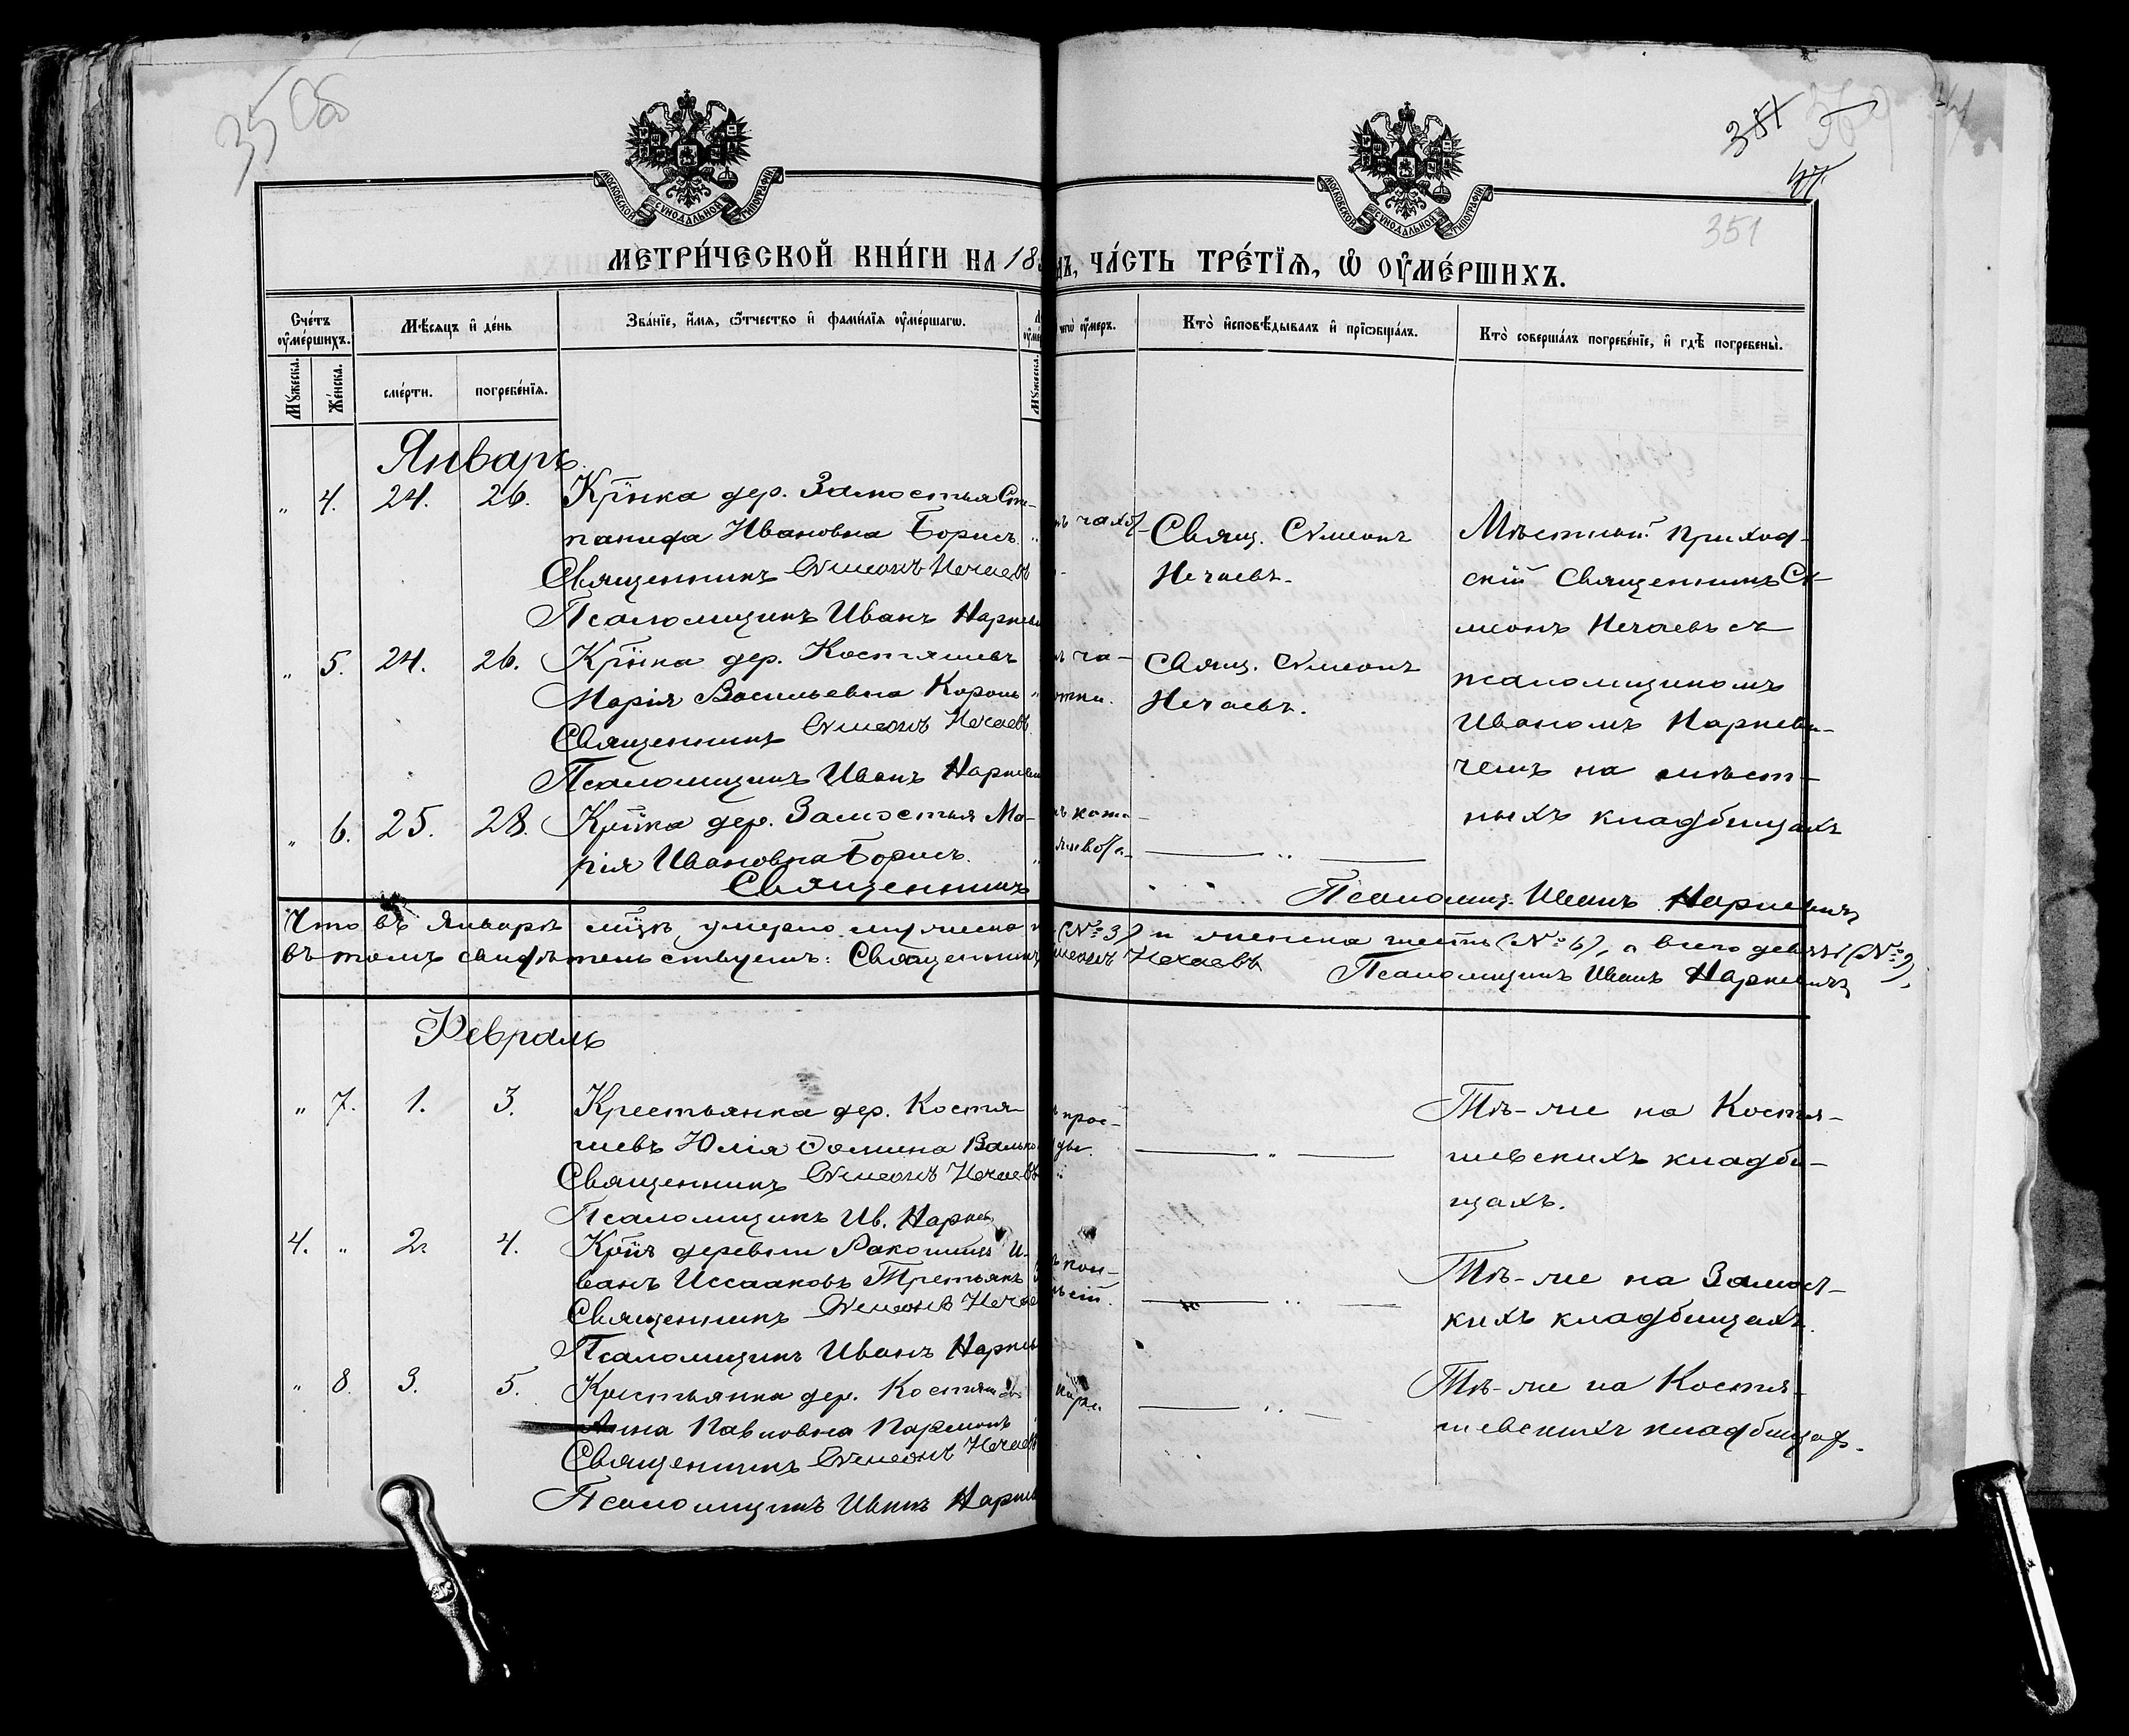 35 Об
381
47.
351
МОСКОВСКОЙ СѴНОДАЛЬНОЙ ТИПОГРАФІИ
МОСКОВСКОЙ СѴНОДАЛЬНОЙ ТИПОГРАФІИ
МЕТРИ́ЧЕСКОЙ КНИ́ГИ НА 18
ЧА́СТЬ ТРЕ́ТЇѦ, Ѽ ОУ҆МЕ́РШИХЪ.
Сче́тъ оу҆ме́ршихъ.
Мѣ́сяцъ и҆ де́нь
Зва́нїе, и҆́мя, ѻ҆́тчество и҆ фами́лїя оу҆ме́ршагѡ.
оу҆́меръ.
Кто̀ и҆сповѣ́дывалъ и҆ прїѡбща́лъ.
Кто̀ соверша́лъ погребе́нїе, и҆ гдѣ̀ погребены̀.
Му́жеска.
Же́нска.
сме́рти.
погребе́нїя.
Му́жеска.
Январь
" 4. 24. 26. Кр̃нка дер. Замостья Сте-
панида Ивановна Борисъ.
Священникъ Сѵмеонъ Нечаевъ
Псаломщикъ Иванъ Наркев
Свящ. Сѵмеонъ
Нечаевъ.
Мѣстный приход-
скій Священникъ Сѵ-
меонъ Нечаевъ съ
псаломщикомъ
Иваномъ Наркеви-
чемъ на мѣст-
ныхъ кладбищахъ
" 5. 24. 26. Кр̃нка дер. Костяшевъ
Марія Васильевна Король
Священникъ Сѵмеонъ Нечаевъ
Псаломщикъ Иванъ Наркев
ча-
отки.
Свящ. Сѵмеонъ
Нечаевъ.
" 6. 25. 28. Кр̃нка дер. Замостья Ма-
рія Ивановна Борисъ.
Священникъ
— " —
Псаломщ. Иванъ Наркевичъ
Что въ Январѣ мц̃ѣ умерло мужеска
(№ 3) и женска шесть (№ 6), а всего девять (№ 9),
въ томъ свидѣтельствуемъ: Священникъ
меонъ Нечаевъ Псаломщикъ Иванъ Наркевичъ
Февраль
" 7. 1. 3. Крестьянка дер. Костя-
шевъ Юлія Ѳомина Валько
Священникъ Сѵмеонъ Нечаевъ
Псаломщикъ Ив. Наркев
прос-
ды.
— " —
Тѣ-же на Костя-
шевскихъ кладби-
щахъ.
4. " 2. 4. Кр̃нъ деревни Ракошицъ И-
ванъ Иссааковъ Третьякъ
Священникъ Сѵмеонъ Нечае
Псаломщикъ Иванъ Наркев
— " —
Тѣ-же на Замост-
кихъ кладбищахъ.
" 8. 3. 5. Крестьянка дер. Костяшевъ
Анна Павловна Пармонъ
Священникъ Сѵмеонъ Нечаевъ
Псаломщикъ Иванъ Наркев
— " —
Тѣ-же на Костя-
шевскихъ кладбищах.